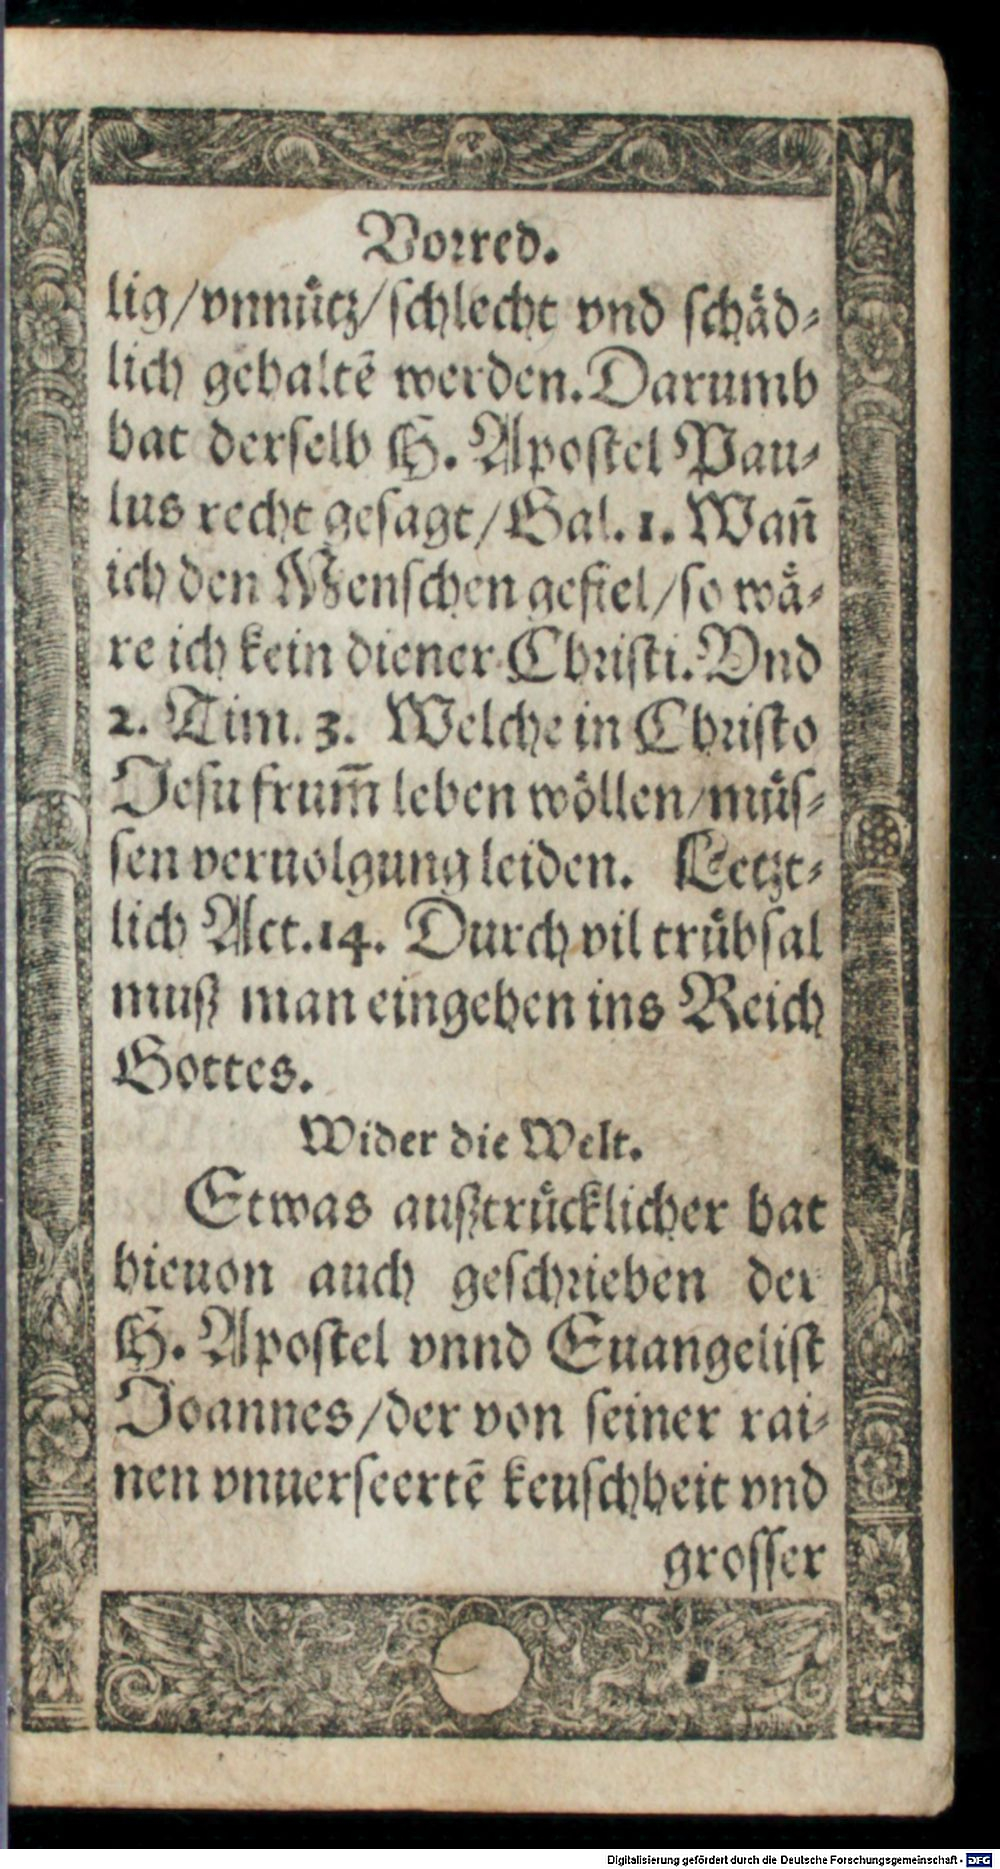 Vorred.
lig/vnnuͤtz/ſchlecht vnd ſchaͤd⸗
lich gehaltẽ werden. Darumb
hat derſelb H. Apoſtel Pau⸗
lus recht geſagt/Gal. 1. Wañ
ich den Menſchen gefiel/ſo waͤ⸗
re ich kein diener Chriſti. Vnd
2. Tim. 3. Welche in Chriſto
Jeſu frum̃ leben woͤllen/muͤſ⸗
ſen veruolgung leiden. Letzt⸗
lich Act.14. Durch vil truͤbſal
muß man eingehen ins Reich
Gottes.
Wider die Welt.
Etwas außtruͤcklicher hat
hieuon auch geſchrieben der
H. Apoſtel vnnd Euangeliſt
Joannes/der von ſeiner rai⸗
nen vnuerſeertẽ keuſchheit vnd
groſſer
Digitalisierung gefördert durch die Deutsche Forschungsgemeinschaft - DFG